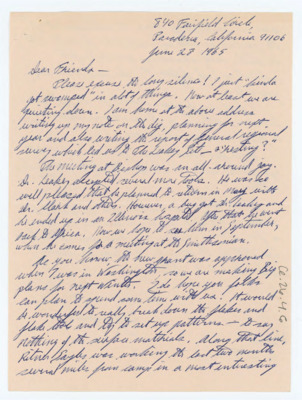 840 Fairfield Circle,
Pasadena, California 91106
June 28, 1965
Dear Friends —
Please excuse the long silence! I just "kinda
got swamped" in a lot of things. Now at least we are
quieting down. I am home at the above address
writing up my notes on the dig, planning for next
year and also writing the report of several regional
surveys which led us to the Leakey Site - "
The meeting at was an all-around joy.
Dr. Leakey accepted several more tools. He was also
well pleased that he planned to return in May with
Dr. Clark and others. However, a bug got Dr. Leakey and
he ended up in an Illinois hospital. After that he went
back to Africa. Now we hope to see him in September,
when he comes for a meeting at the Smithsonian.
As you know, the new grant was approved
when I was in Washington, so we are making big
plans for next winter. I do hope you folks
can plan to spend some time with us. It would
be wonderful to really break down the flakes and
blade tools and try to set up patterns — to say
nothing of the surface materials. Along that line,
Ritner Sayles was working the last two months
several miles from camp in a most interesting